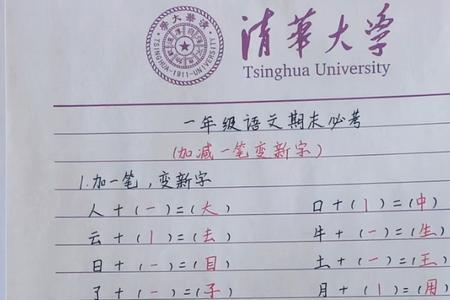 清華大學
TSINGHUA UNIVERSITY
-1911-
清華大学
Tsinghua University
一年级语文期末必考
(加减一笔变新字)
1.加一笔,变新字
人+(一)=(大) 口+(丨)=(中)
云+(丨)=(去) 牛+(一)=(生)
日+(一)=(目) 土+(一)=(王)
了+(一)=(子) 月+(丨)=(用)